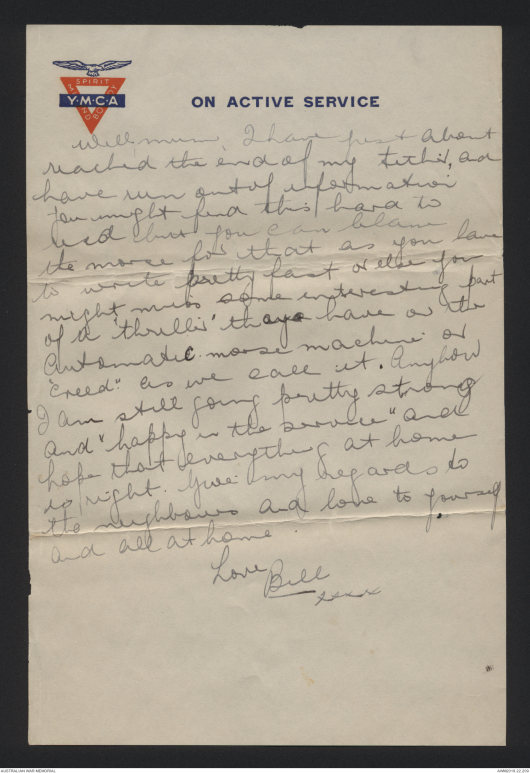 SPIRIT
MIND
BODY
Y·M·C·A
ON ACTIVE SERVICE
Well mum, I have just about
reached the end of my tether, and
have run out of information
You might find this hard to
read but you can blame
the morse for that as you have
to write pretty fast or else you
might miss some interesting part
of a "thriller" they have on the
Automatic morse machine or
"Creed" as we call it. Anyhow
I am still going pretty strong
and "happy in the service" and
hope that everything at home
is right. Give my regards to
the neighbours and love to yourself
and all at home.
Love
Bill
xxxxx
AUSTRALIAN WAR MEMORIAL